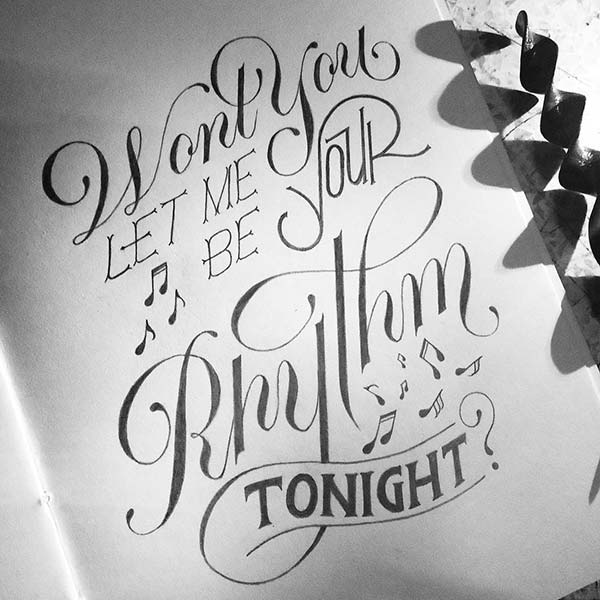 Wont You
LET ME
BE YOUR
Rhythm
TONIGHT?